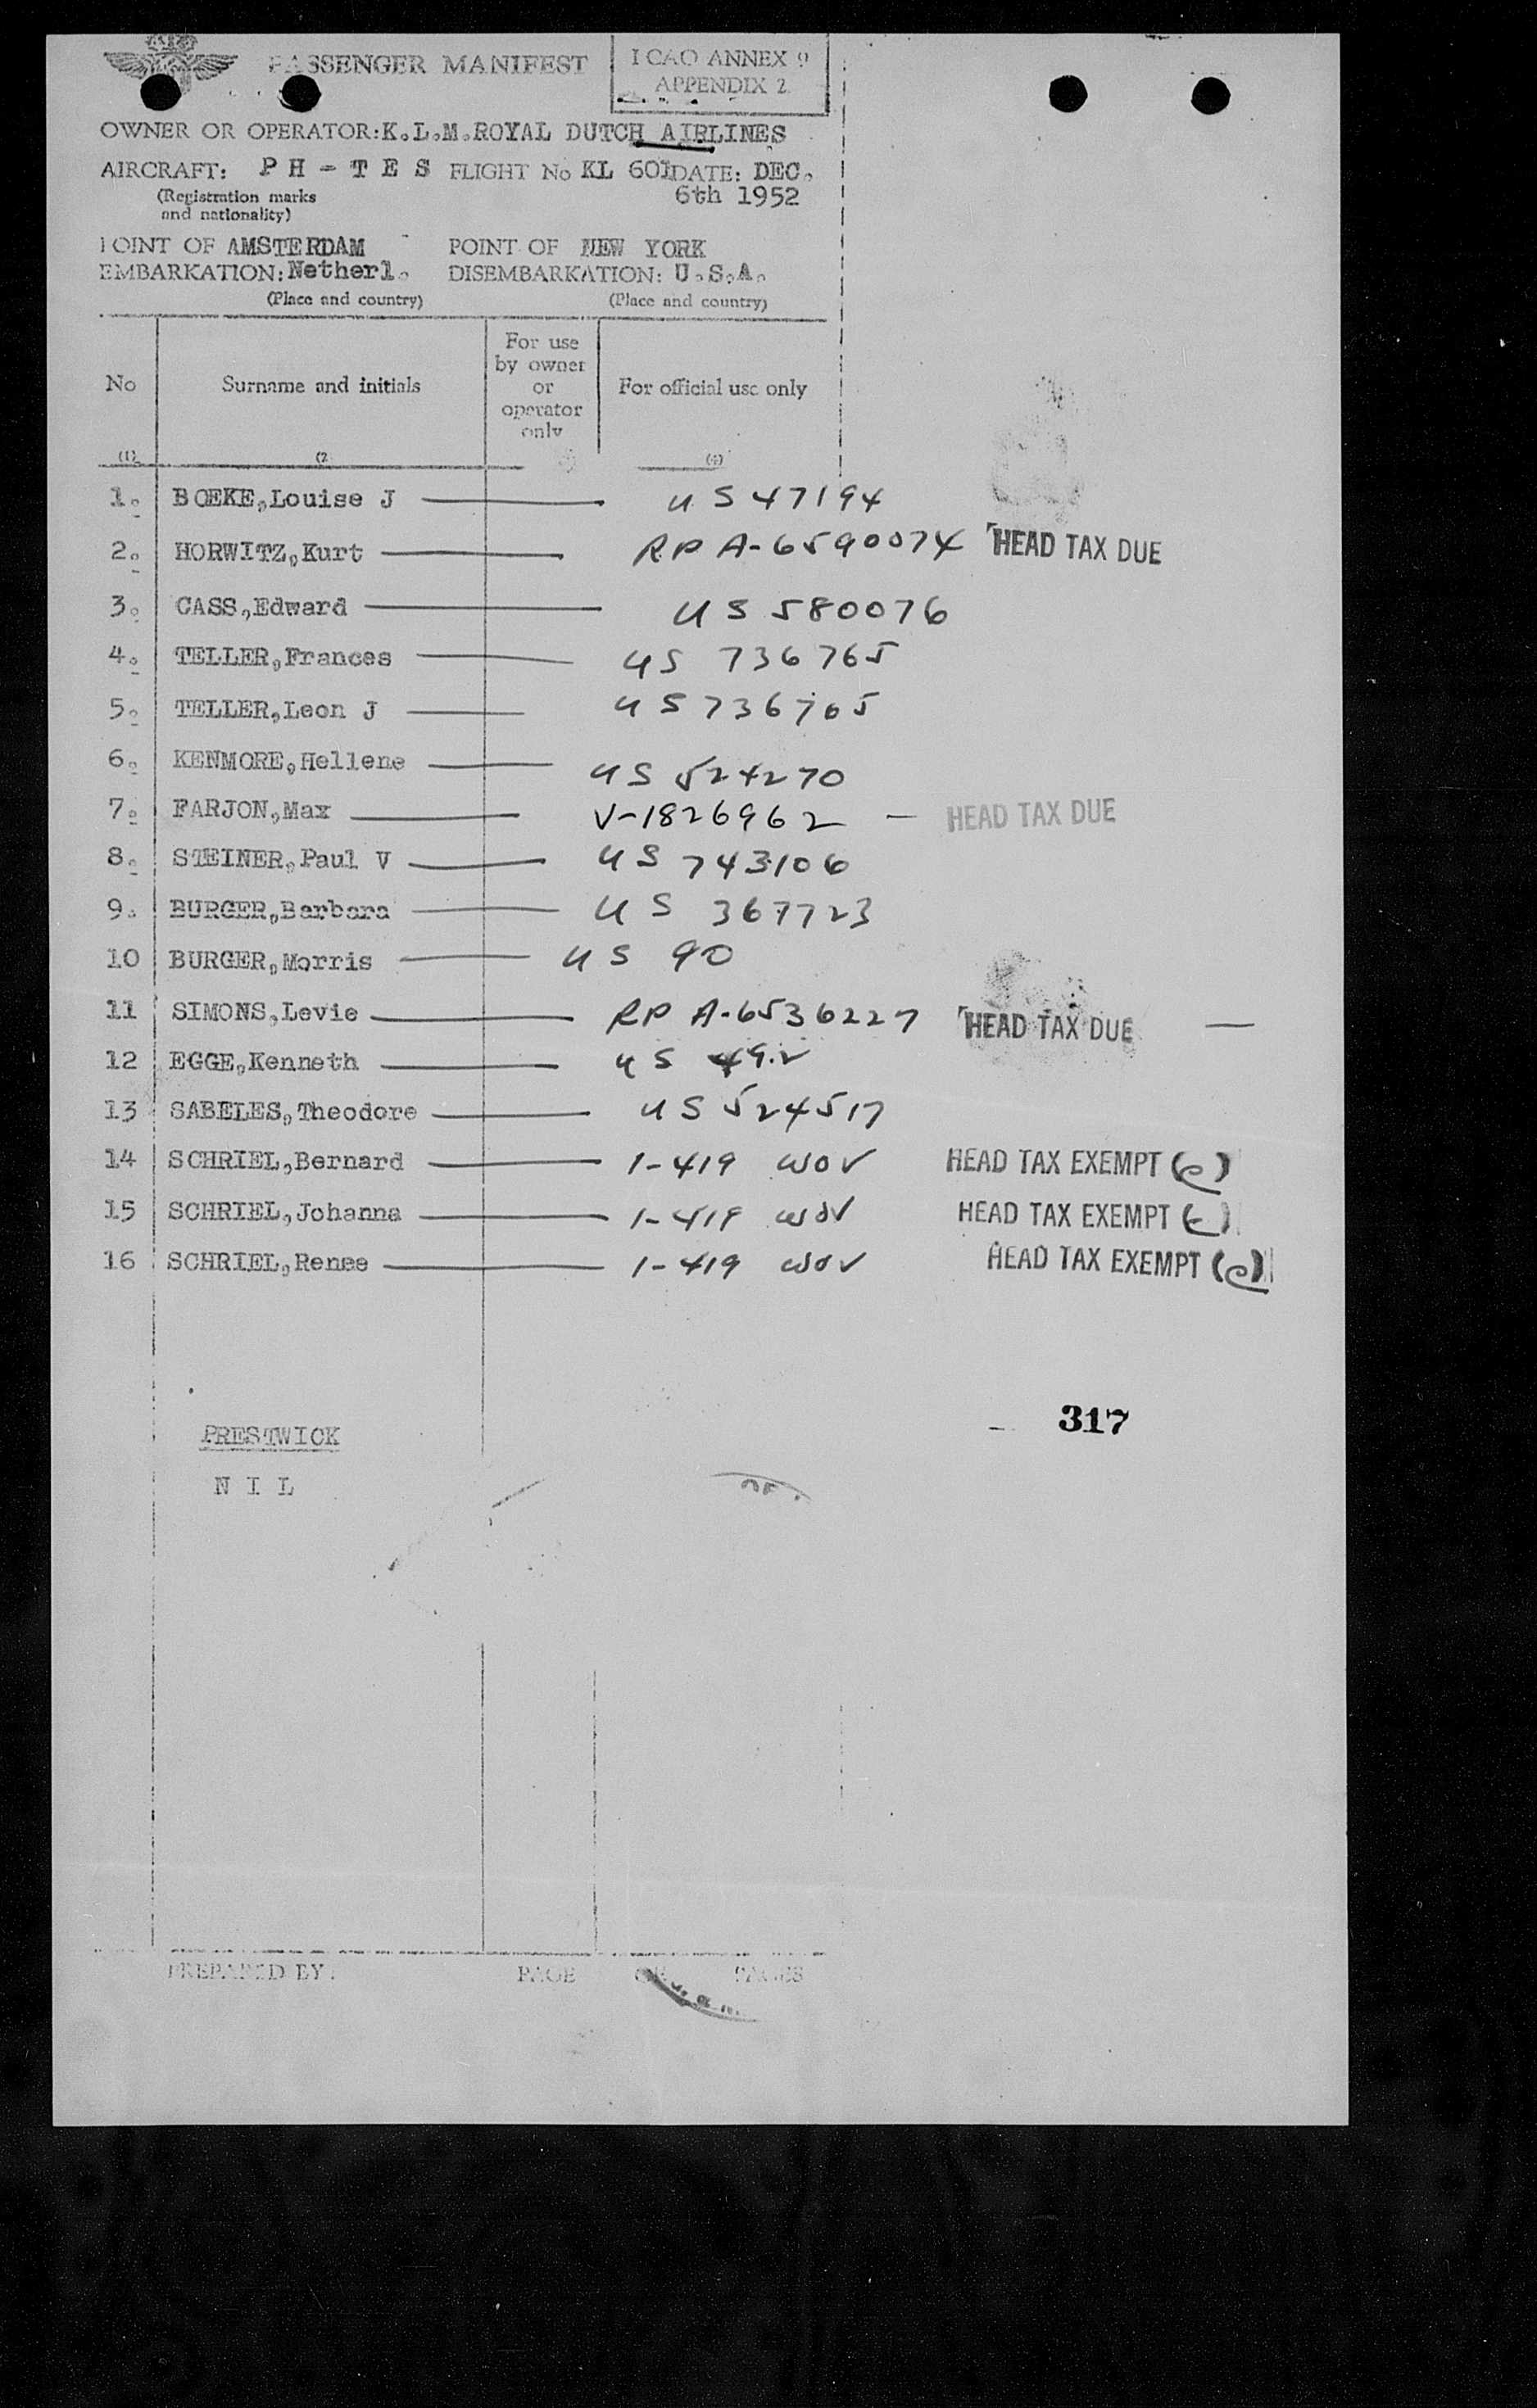 PASSENGER MANIFEST
ICAO ANNEX 9
APPENDIX 2
OWNER OR OPERATOR: K.L.M. ROYAL DUTCH AIRLINES
AIRCRAFT: PH-TES FLIGHT No KL 601 DATE: DEC.
(Registration marks and nationality)
6th 1952
POINT OF EMBARKATION: AMSTERDAM Netherl.
POINT OF DISEMBARKATION: NEW YORK U.S.A.
(Place and country) (Place and country)
No Surname and initials For use by owner or operator only For official use only
(1) (2 (4)
1. BOEKE, Louise J US 47194
2. HORWITZ, Kurt RP A-6590074 HEAD TAX DUE
3. CASS, Edward US 580076
4. TELLER, Frances US 736765
5. TELLER, Leon J US 736765
6. KENMORE, Hellene US 524270
7. FARJON, Max V-1826962 — HEAD TAX DUE
8. STEINER, Paul V US 743106
9. BURGER, Barbara US 367723
10 BURGER, Morris US 90
11 SIMONS, Levie RP A-6536227 HEAD TAX DUE —
12 EGGE, Kenneth US
13 SABELES, Theodore US 524517
14 SCHRIEL, Bernard 1-419 WOV HEAD TAX EXEMPT (e)
15 SCHRIEL, Johanna 1-419 WOV HEAD TAX EXEMPT
16 SCHRIEL, Renee 1-419 WOV HEAD TAX EXEMPT (e)
317
PRESTWICK
N I L
PREPARED BY: PAGE OF PAGES